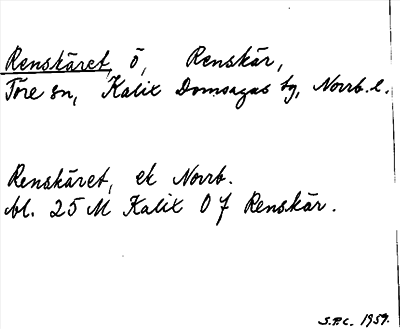 Renskäret, ö, Renskär,
Töre sn, Kalix Domsagas tg, Norrb. l.
Renskäret, ek Norrb.
bl. 25 M Kalix 0 7 Renskär.
S.P.C. 1959.